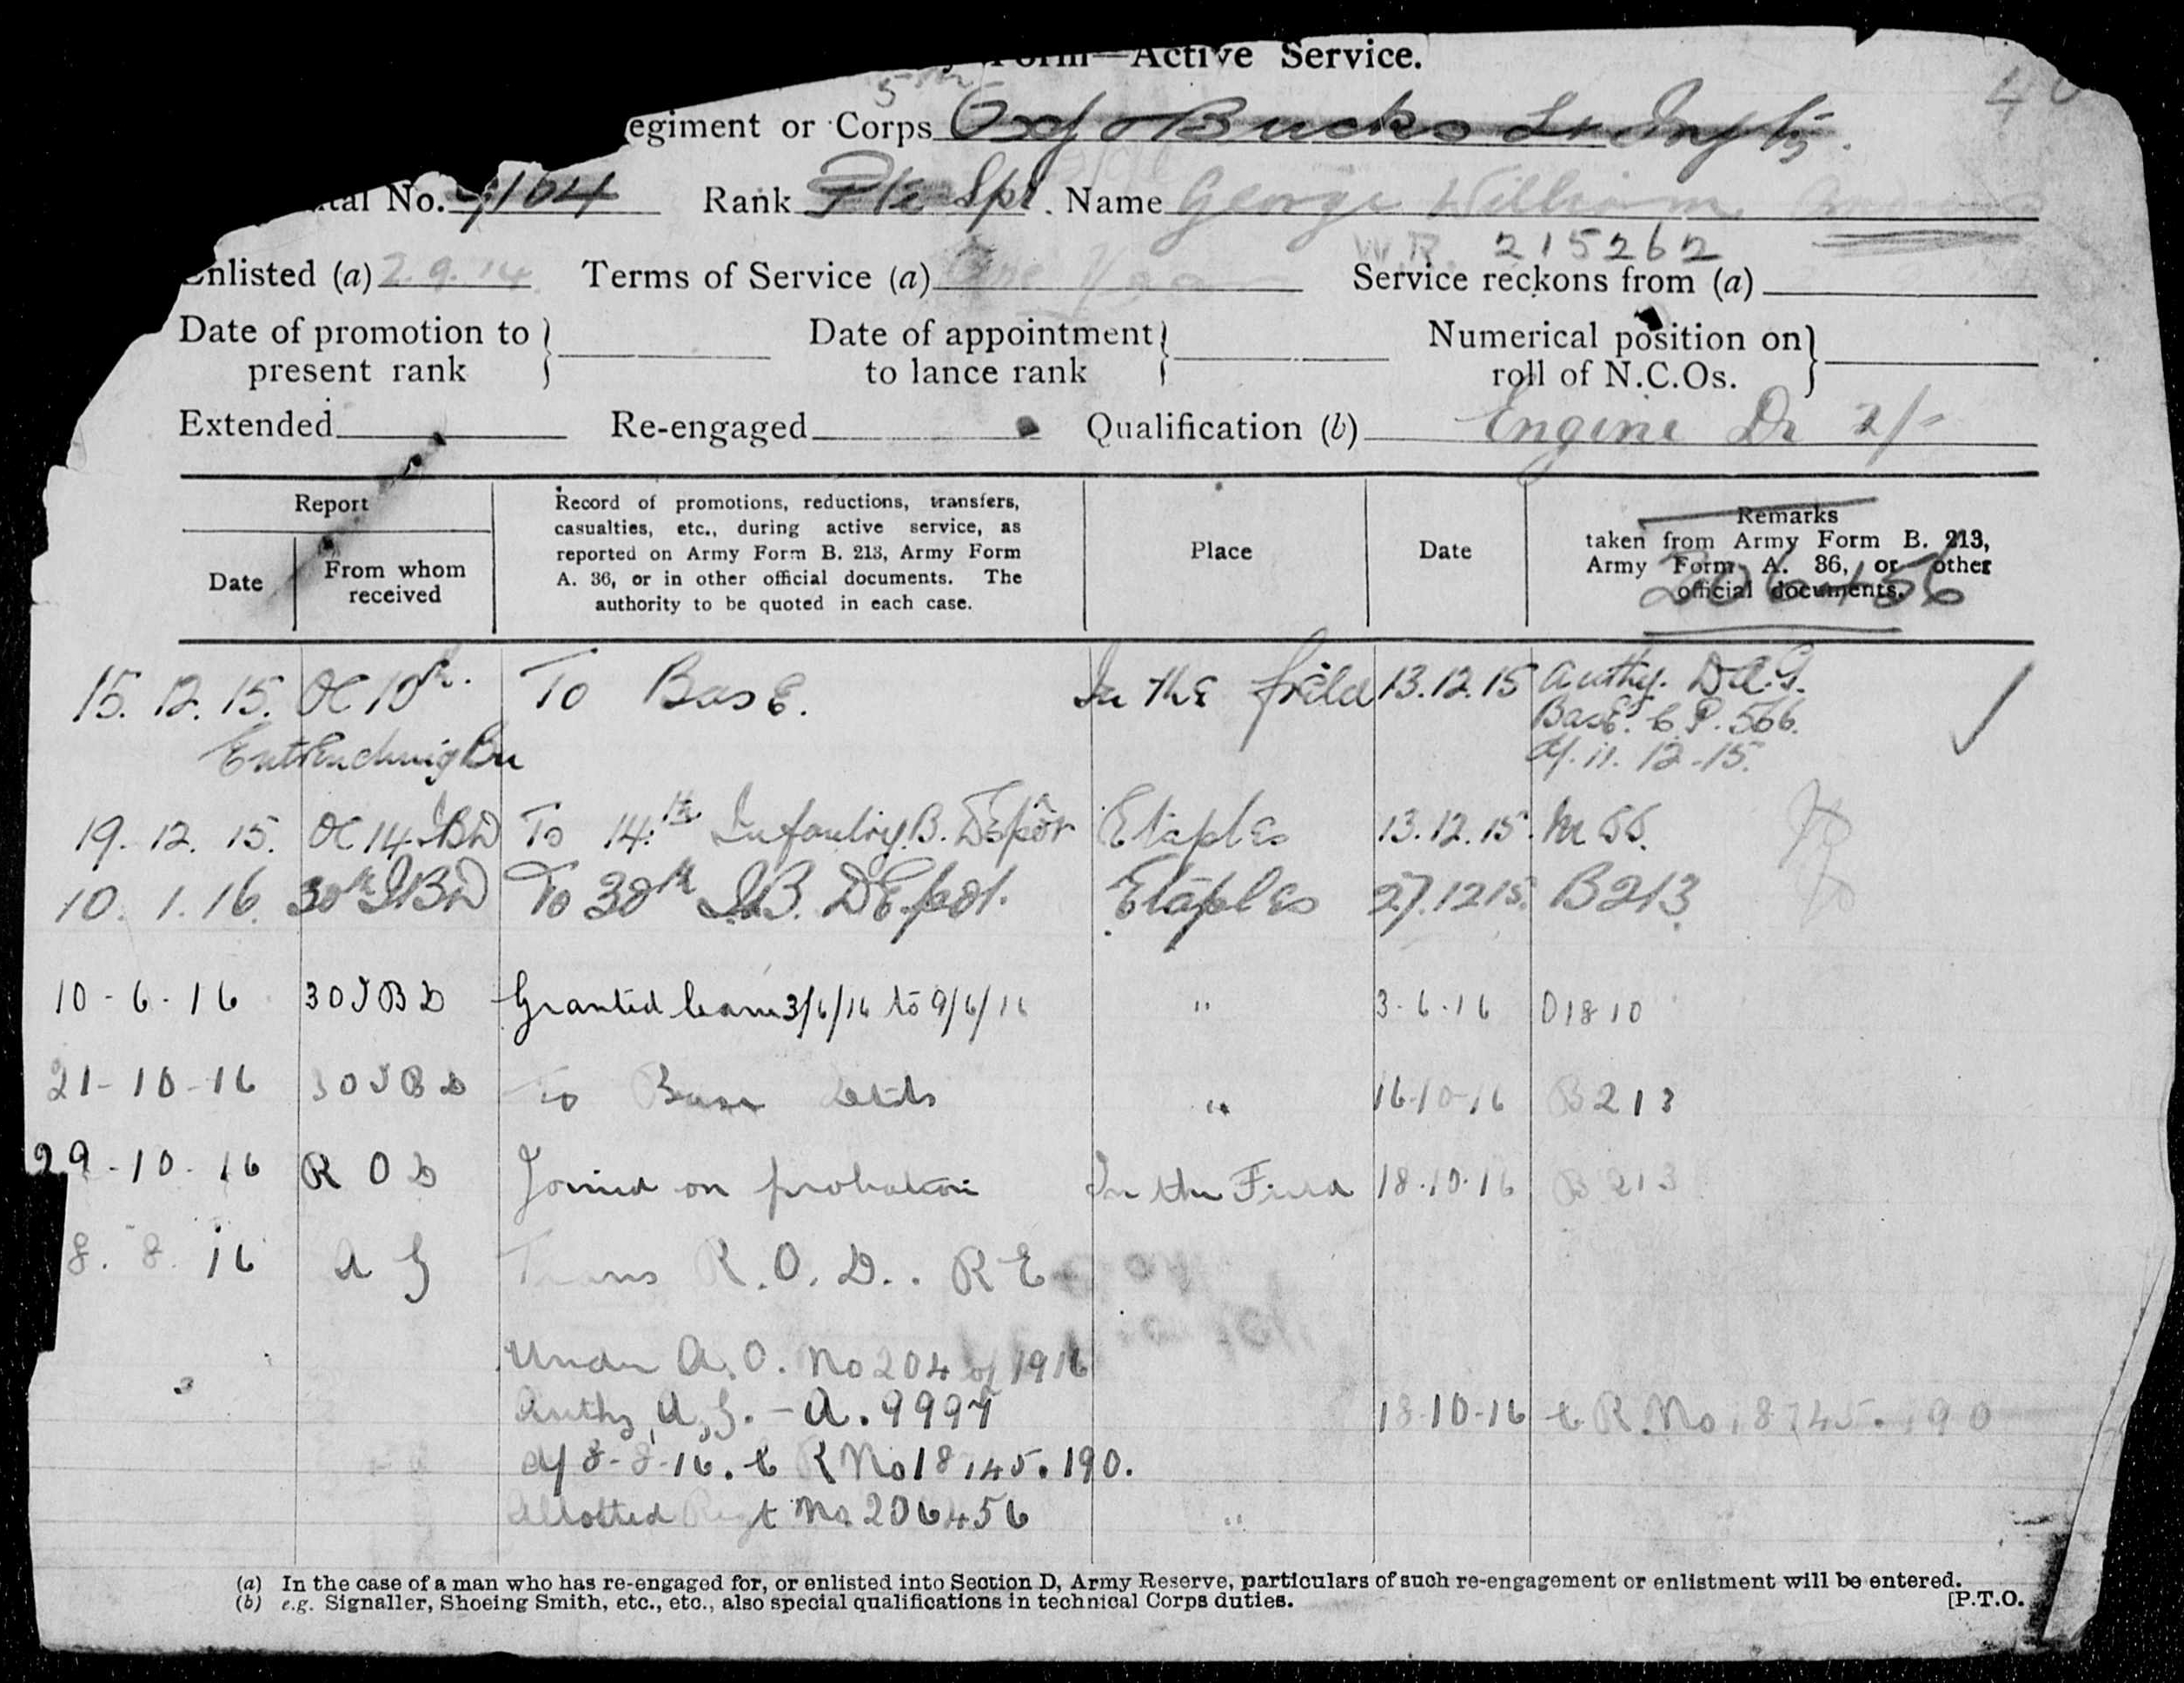 Form—Active Service.
5th
egiment or Corps Oxf & Bucks Lt Infty.
tal No. 9104 Rank Pte Spr. Name George William
W.R. 215262
Enlisted (a) 2.9.14 Terms of Service (a) One Year Service reckons from (a)
Date of promotion to present rank } Date of appointment to lance rank } Numerical position on roll of N.C.Os. }
Extended Re-engaged Qualification (b) Engine Dr 2/-
Report
Date
From whom received
Record of promotions, reductions, transfers,
casualties, etc., during active service, as
reported on Army Form B. 213, Army Form
A. 36, or in other official documents. The
authority to be quoted in each case.
Place
Date
Remarks
taken from Army Form B. 213,
Army Form A. 36, or other
official documents.
206456
15. 12. 15. OC 10th. To Base. In the field 13.12.15 Authy. D.A.G.
Base. C.P. 566.
Entrenching Bn
d/. 11. 12-15.
19. 12. 15. OC 14 IBD To 14th Infantry. B. Depôt Etaples 13.12.15.
10. 1. 16. 30th IBD To 30th I.B. Depot. Etaples 27.12.15. B213
10-6-16 30 I B D Granted leave 3/6/16 to 9/6/16 " 3-6-16 D1810
21-10-16 30 I B D To Base Details " 16-10-16 B213
29-10-16 R O D Joined on probation In the Field 18-10-16 B213
8. 8. 16 A G Trans R.O.D.. R E
Under A.O. No 204 of 1916
Authy A.G. - A. 9997 18-10-16 C R. No 18745. 190
d/ 8-8-16. C R No 18745. 190.
Allotted Regt No. 206456 "
(a) In the case of a man who has re-engaged for, or enlisted into Section D, Army Reserve, particulars of such re-engagement or enlistment will be entered.
(b) e.g. Signaller, Shoeing Smith, etc., etc., also special qualifications in technical Corps duties.
[P.T.O.